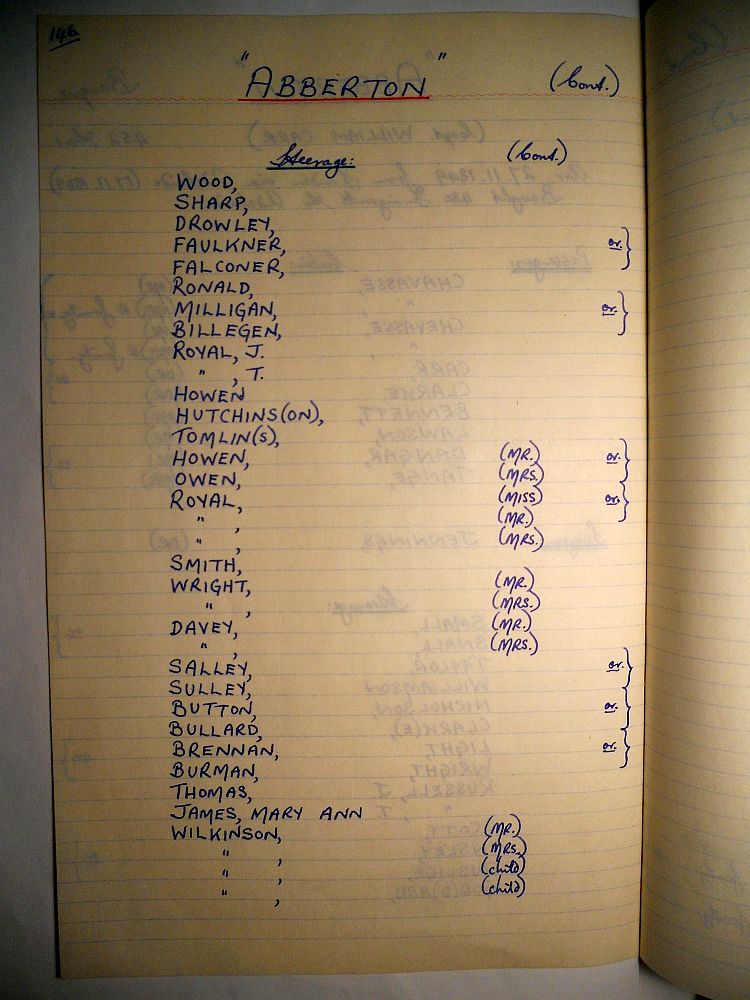 146.
"ABBERTON" (Cont.)
Steerage: (Cont.)
WOOD,
SHARP,
DROWLEY,
FAULKNER, or. }
FALCONER,
RONALD,
MILLIGAN, or. }
BILLEGEN,
ROYAL, J.
" , T.
HOWEN
HUTCHINS(ON),
TOMLIN(S),
HOWEN, (MR.) or. }
OWEN, (MRS.)
ROYAL, (MISS) or. }
" , (MR.)
" , (MRS.)
SMITH,
WRIGHT, (MR.)
" , (MRS.)
DAVEY, (MR.)
" , (MRS.)
SALLEY, or. }
SULLEY,
BUTTON, or. }
BULLARD,
BRENNAN, or. }
BURMAN,
THOMAS,
JAMES, MARY ANN
WILKINSON, (MR.)
" , (MRS.)
" , (child)
" , (child)